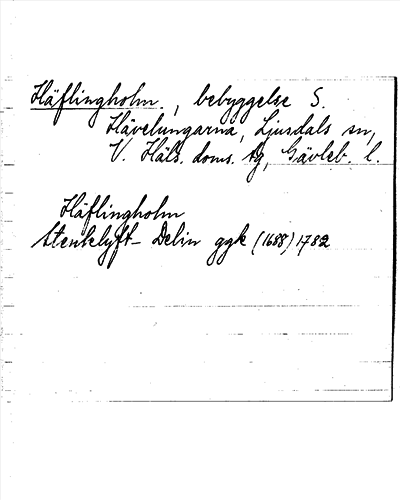 Häflingholm., bebyggelse S.
Hävelungarna, Ljusdals sn,
V. Häls. doms. tg, Gävleb. l.
Häflingholm
Stenkelyft- Delin ggk (1688) 1782